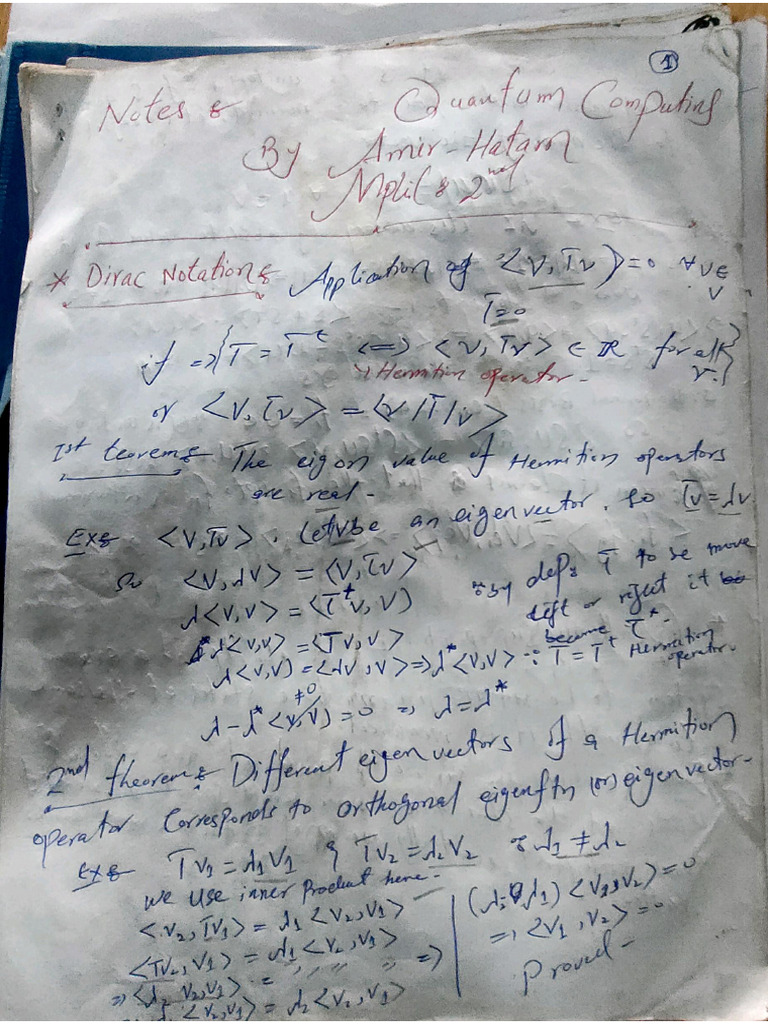 1
Notes & Quantum Computing
By Amir-Hatam
Mphil & 2nd
* Dirac Notation & Application of <V,Tv> = 0 ∀ v ∈ V
T=0
if => {T = T^t <=> <v,Tv> ∈ R for all v}
↳ Hermition operator-
or <V,Tv> = <v|T|v>
1st teorem & The eigon value of Hermition operators
are real-
Ex & <V,Tv>. Let v be an eigenvector. So Tv = λv
So <V,λV> = <V,Tv>
λ<v,v> = <T^+v,v)
λ<v,v> = <Tv,v>
λ<v,v) = <λv,v> => λ*<v,v> ∵ T = T^+ Hermition operator.
by def: T to se move
left or reject it
become T*.
λ-λ*<v,v> = 0 => λ = λ*
≠0
2nd theorem & Different eigenvectors of a Hermition
operator Corresponds to orthogonal eigenftn (or) eigenvector-
Ex & Tv1 = λ1V1 & Tv2 = λ2V2 & λ1 ≠ λ2
we use inner Product here-
<v2,Tv1> = λ1<v2,v1>
<Tv2,V1> = λ1<v2,v1>
=> <λ2 V2,v1> = " " " " =>
<v2,v1> = λ2<v2,v1>
(λ2-λ1) <v1,v2> = 0
=> <v1,v2> = 0
Proved-